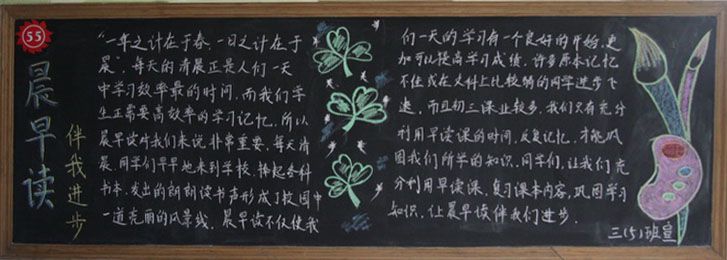 55
晨早读
伴我进步
“一年之计在于春,一日之计在于
晨”,每天的清晨正是人们一天
中学习效率最的时间,而我们学
生正需要高效率的学习记忆,所以
晨早读对我们来说非常重要,每天清
晨,同学们早早地来到学校,捧起各科
书本,发出的朗朗读书声形成了校园中
一道亮丽的风景线,晨早读不仅使我
们一天的学习有一个良好的开始,更
加可以提高学习成绩,许多原本记忆
不佳或在文科上比较弱的同学进步飞
速,而且初三课业较多,我们只有充分
利用早读课的时间,反复记忆,才能巩
固我们所学的知识,同学们,让我们充
分利用早读课,复习课本内容,巩固学习
知识,让晨早读伴我们进步.
三(5)班宣